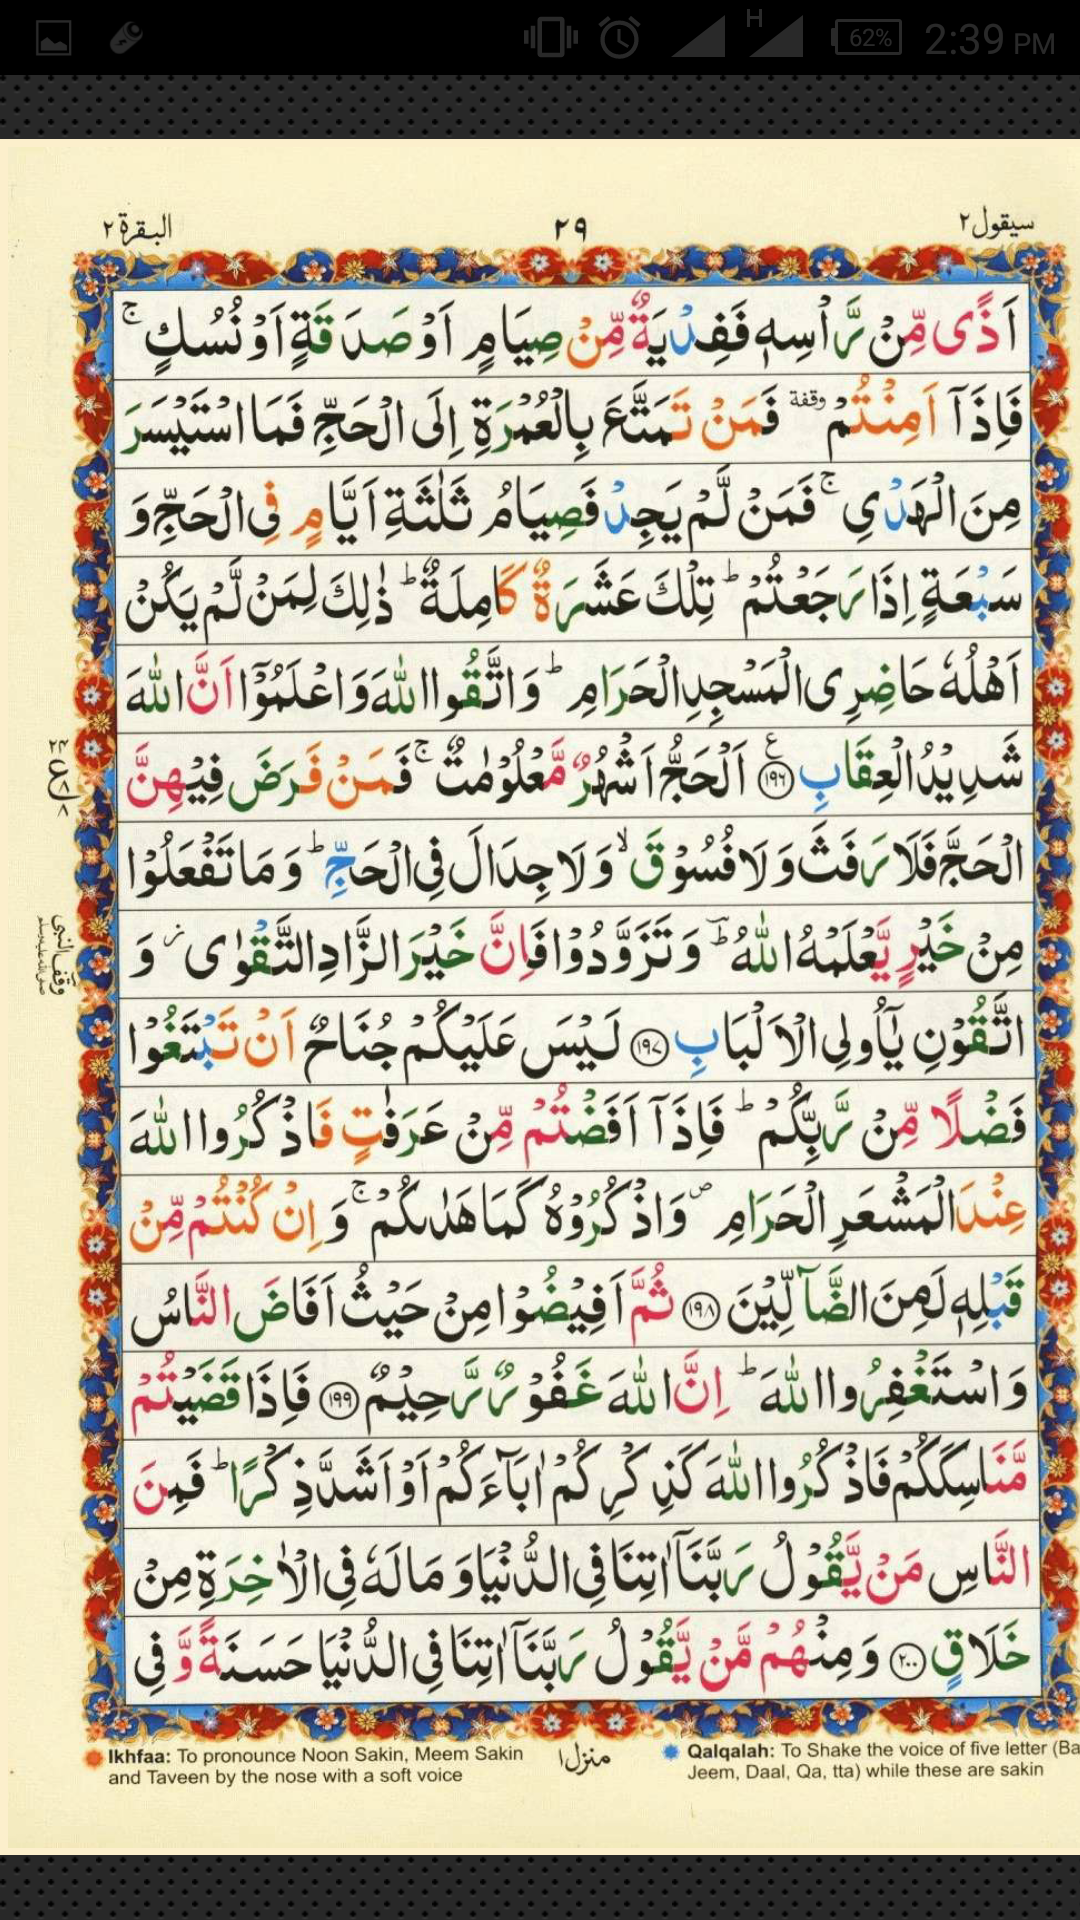 62% 2:39 PM
H
البقرة ٢ ٢٩ سيقول ٢
اَذًى مِّنْ رَّاْسِهٖ فَفِدْيَةٌ مِّنْ صِيَامٍ اَوْ صَدَقَةٍ اَوْ نُسُكٍ ۚ
فَاِذَآ اَمِنْتُمْ وقفة فَمَنْ تَمَتَّعَ بِالْعُمْرَةِ اِلَى الْحَجِّ فَمَا اسْتَيْسَرَ
مِنَ الْهَدْيِ ۚ فَمَنْ لَّمْ يَجِدْ فَصِيَامُ ثَلٰثَةِ اَيَّامٍ فِى الْحَجِّ وَ
سَبْعَةٍ اِذَا رَجَعْتُمْ ؕ تِلْكَ عَشَرَةٌ كَامِلَةٌ ؕ ذٰلِكَ لِمَنْ لَّمْ يَكُنْ
اَهْلُهٗ حَاضِرِى الْمَسْجِدِ الْحَرَامِ ؕ وَاتَّقُوا اللّٰهَ وَاعْلَمُوْٓا اَنَّ اللّٰهَ
شَدِيْدُ الْعِقَابِ ﴿۱۹۶﴾ ع اَلْحَجُّ اَشْهُرٌ مَّعْلُوْمٰتٌ ۚ فَمَنْ فَرَضَ فِيْهِنَّ
الْحَجَّ فَلَا رَفَثَ وَلَا فُسُوْقَ ۙ وَلَا جِدَالَ فِى الْحَجِّ ؕ وَمَا تَفْعَلُوْا
مِنْ خَيْرٍ يَّعْلَمْهُ اللّٰهُ ؔؕ وَتَزَوَّدُوْا فَاِنَّ خَيْرَ الزَّادِ التَّقْوٰى ؗ وَ
وقف النبى صلى الله عليه وسلم
اتَّقُوْنِ يٰٓاُولِى الْاَلْبَابِ ﴿۱۹۷﴾ لَيْسَ عَلَيْكُمْ جُنَاحٌ اَنْ تَبْتَغُوْا
فَضْلًا مِّنْ رَّبِّكُمْ ؕ فَاِذَآ اَفَضْتُمْ مِّنْ عَرَفٰتٍ فَاذْكُرُوا اللّٰهَ
عِنْدَ الْمَشْعَرِ الْحَرَامِ ۪ وَاذْكُرُوْهُ كَمَا هَدٰىكُمْ ۚ وَاِنْ كُنْتُمْ مِّنْ
قَبْلِهٖ لَمِنَ الضَّآلِّيْنَ ﴿۱۹۸﴾ ثُمَّ اَفِيْضُوْا مِنْ حَيْثُ اَفَاضَ النَّاسُ
وَاسْتَغْفِرُوا اللّٰهَ ؕ اِنَّ اللّٰهَ غَفُوْرٌ رَّحِيْمٌ ﴿۱۹۹﴾ فَاِذَا قَضَيْتُمْ
مَّنَاسِكَكُمْ فَاذْكُرُوا اللّٰهَ كَذِكْرِكُمْ اٰبَآءَكُمْ اَوْ اَشَدَّ ذِكْرًا ؕ فَمِنَ
النَّاسِ مَنْ يَّقُوْلُ رَبَّنَآ اٰتِنَا فِى الدُّنْيَا وَمَا لَهٗ فِى الْاٰخِرَةِ مِنْ
خَلَاقٍ ﴿۲۰۰﴾ وَمِنْهُمْ مَّنْ يَّقُوْلُ رَبَّنَآ اٰتِنَا فِى الدُّنْيَا حَسَنَةً وَّفِى
منزل ١
Ikhfaa: To pronounce Noon Sakin, Meem Sakin
and Taveen by the nose with a soft voice
Qalqalah: To Shake the voice of five letter (Ba
Jeem, Daal, Qa, tta) while these are sakin